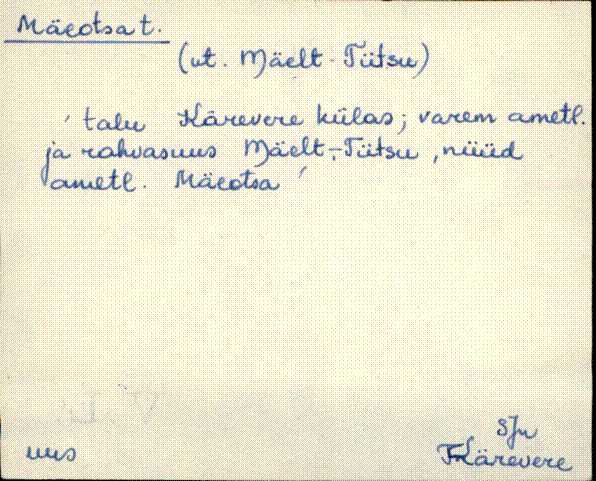 Mäeotsa t.
(vt. Mäelt-Tiitsu)
' talu Kärevere külas; varem ametl.
ja rahvasuus Mäelt-Tiitsu, nüüd
ametl. Mäeotsa '
SJn
uus
Kärevere